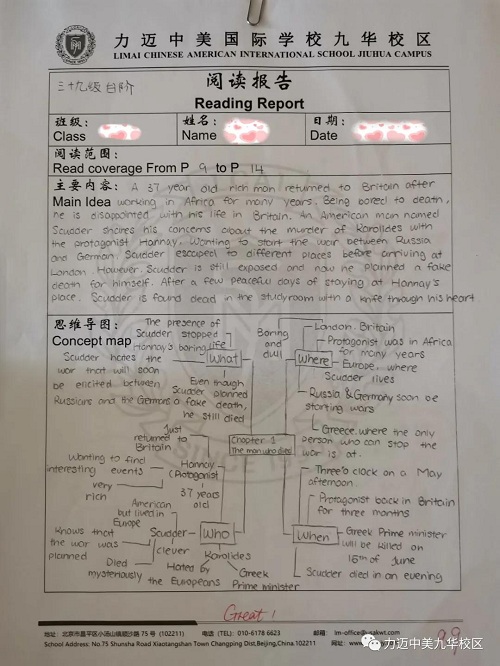 力迈中美国际学校九华校区
LIMAI CHINESE AMERICAN INTERNATIONAL SCHOOL JIUHUA CAMPUS
三十九级台阶
阅读报告
Reading Report
班级:
Class
姓名:
Name
日期:
Date
阅读范围:
Read coverage From P 9 to P 14
主要内容: A 37 year old rich man returned to Britain after
Main Idea working in Africa for many years. Being bored to death,
he is disappointed with his life in Britain. An American man named
Scudder shares his concerns about the murder of Karolides with
the protagonist Hannay. Wanting to start the war between Russia
and German, Scudder escaped to different places before arriving at
London. However, Scudder is still exposed and now he planned a fake
death for himself. After a few peaceful days of staying at Hannay's
place, Scudder is found dead in the studyroom with a knife through his heart
思维导图:
Concept map
The presence of
Scudder stopped
Hannay's boring life
What
Scudder hates the
war that will soon
be elicited between
Russians and the Germans
Even though
Scudder planned
a fake death,
he still died
Boring
and
dull
Where
London, Britain
Protagonist was in Africa
for many years
Europe, where
Scudder lives
Russia & Germany soon be
starting wars
Greece, where the only
person who can stop the
war is at.
Chapter 1
The man who died
Just
returned to
Britain
Wanting to find
interesting events
very
rich
Hannay
(Protagonist
37 years
old
Who
American
but lives in
Europe
Scudder
Knows that
the war was
planned
clever
Died
mysteriously
Karolides
Hated by
the Europeans
Greek
Prime minister
When
Three'o clock on a May
afternoon
Protagonist back in Britain
for three months
Greek Prime minister
will be killed on
15th of June
Scudder died in an evening
Great!
99
地址:北京市昌平区小汤山镇顺沙路 75 号 (102211)
电话 (TEL): 010-6178 6623
邮箱
School Address: No.75 Shunsha Road Xiaotangshan Town Changping Dist.Beijing,China.102211
力迈中美九华校区